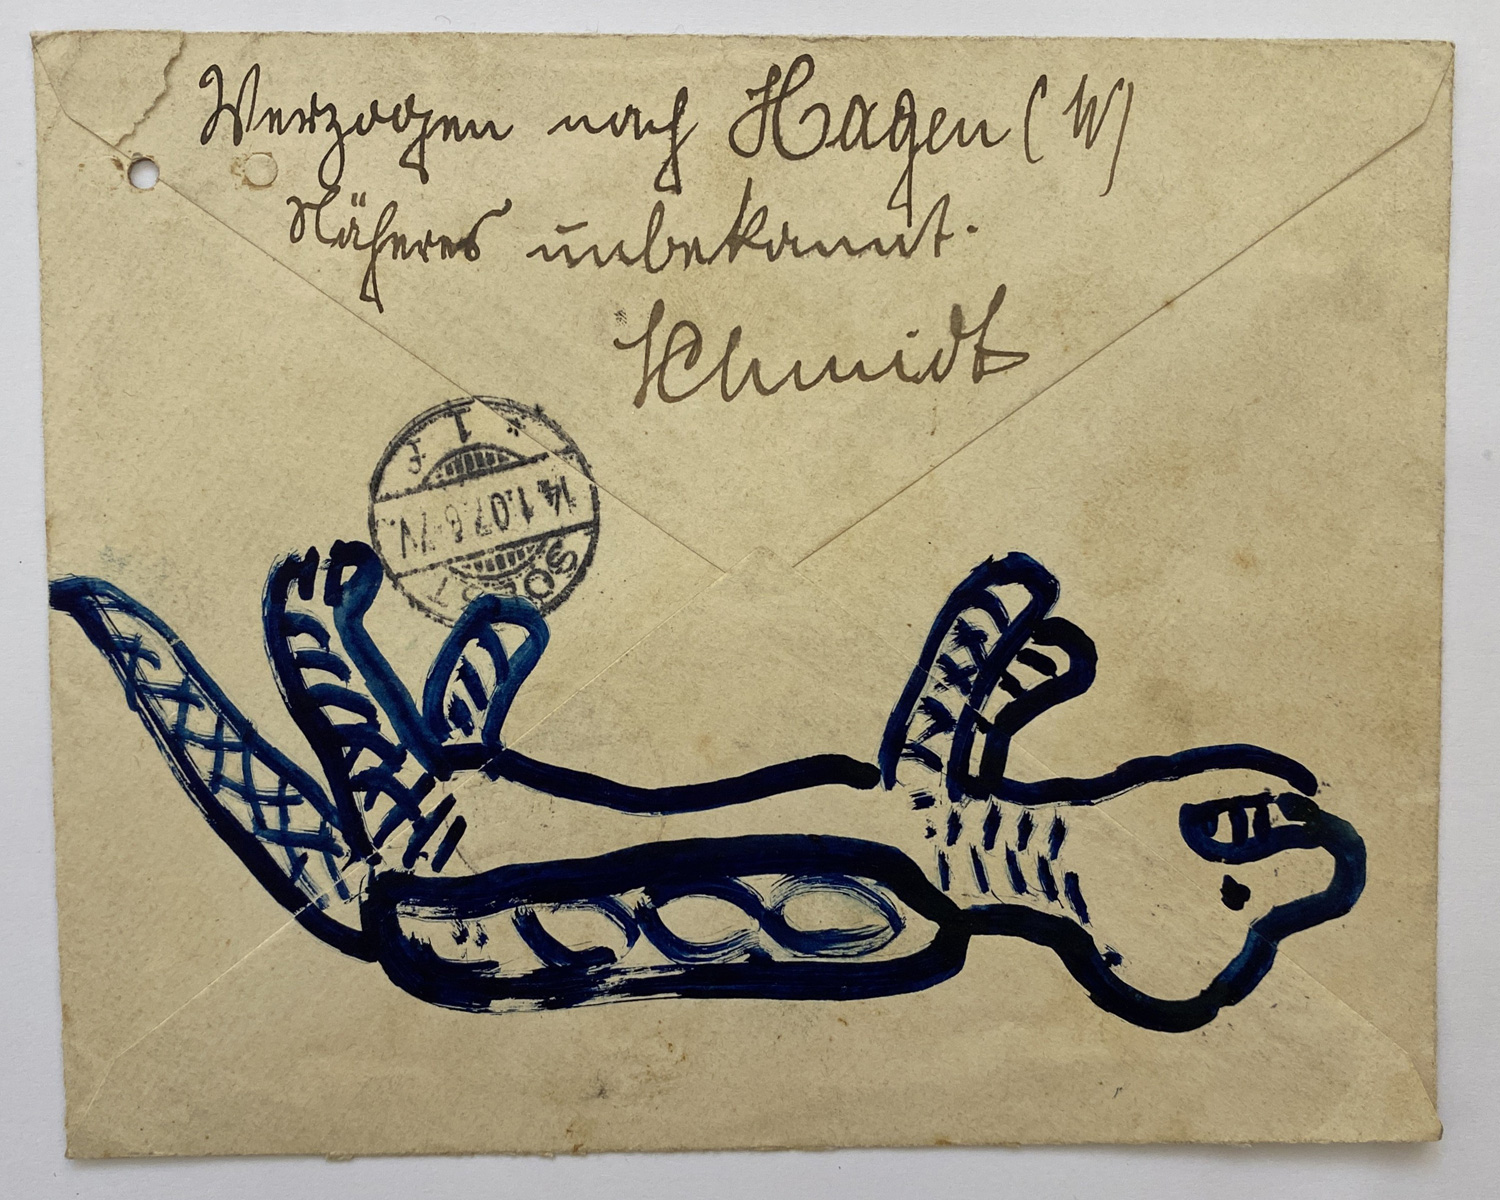 Verzogen nach Hagen (W)
Näheres unbekannt.
Schmidt
SOEST
14.1.07.6-7V.
* 1 f